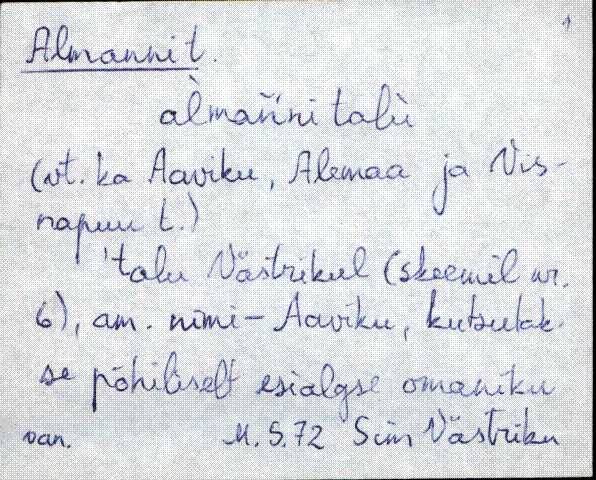 1
Almanni t.
àlmaǹni talù
(vt. ka Aaviku, Alemaa ja Vis-
napuu t.)
'talu Västrikul (skeemil nr.
6), am. nimi - Aaviku, kutsutak-
se põhiliselt esialgse omaniku
van. M. S. 72 Siim Västriku